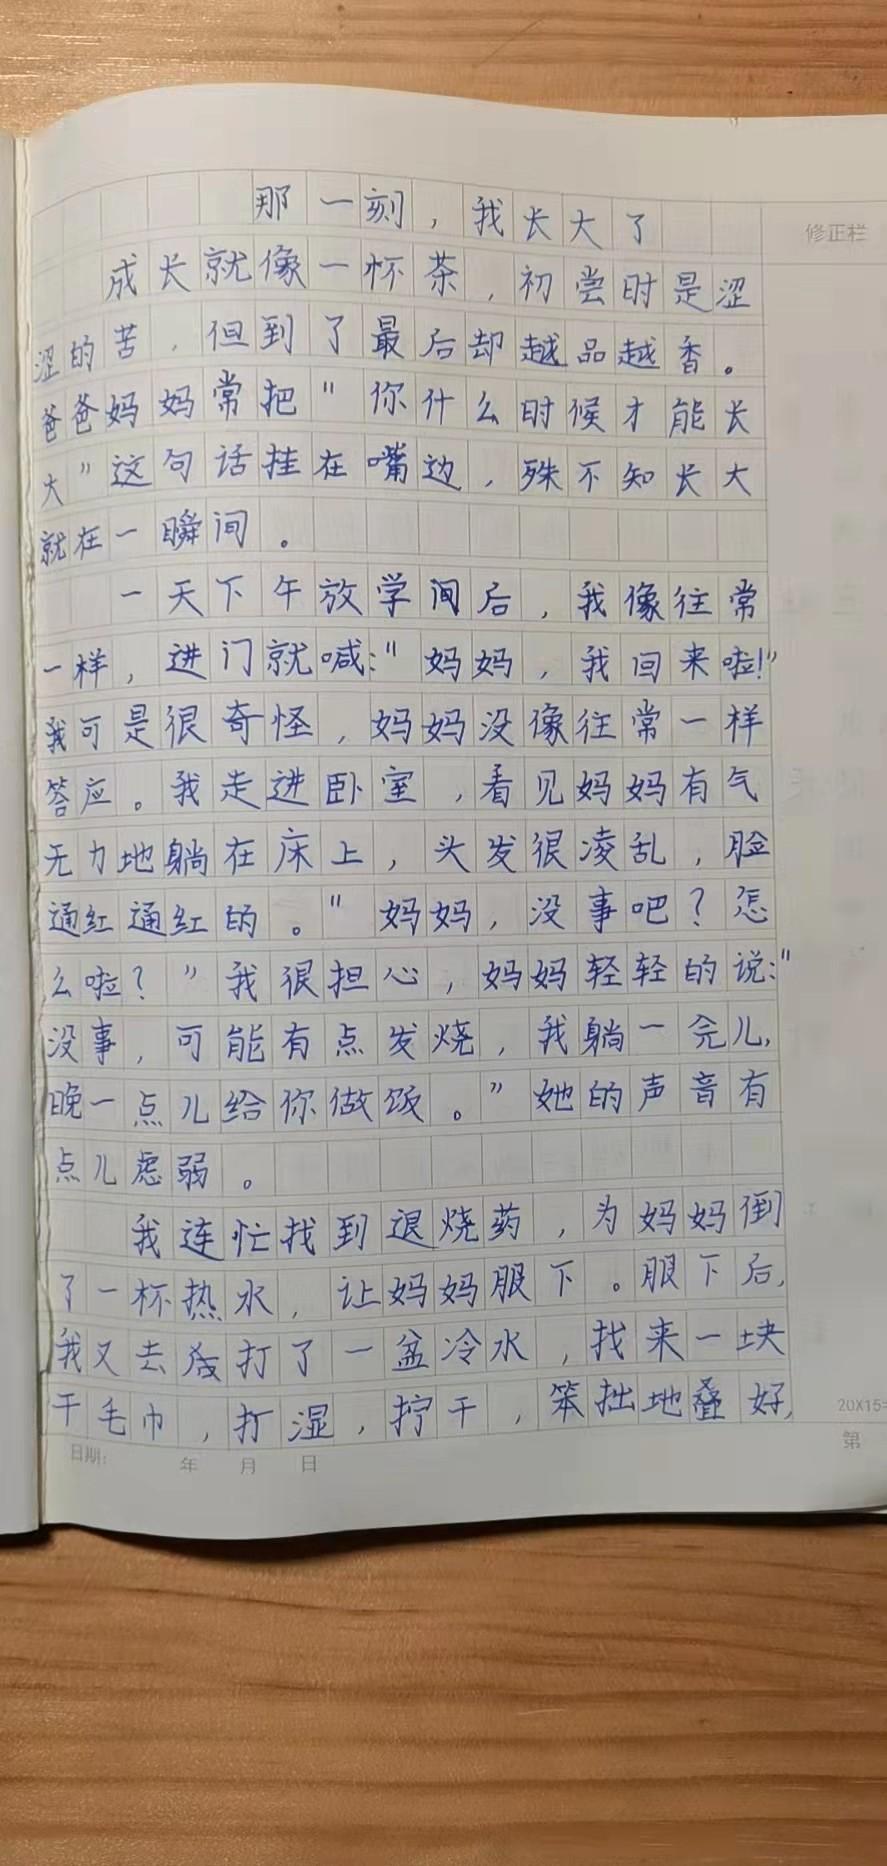 那一刻，我长大了
修正栏
成长就像一怀茶，初尝时是涩
涩的苦，但到了最后却越品越香。
爸爸妈妈常把"你什么时候才能长
大"这句话挂在嘴边，殊不知长大
就在一瞬间。
一天下午放学间后，我像往常
一样，进门就喊："妈妈，我回来啦!"
我可是很奇怪，妈妈没像往常一样
答应。我走进卧室，看见妈妈有气
无力地躺在床上，头发很凌乱，脸
通红通红的。"妈妈，没事吧？怎
么啦？"我很担心，妈妈轻轻的说："
没事，可能有点发烧，我躺一会儿，
晚一点儿给你做饭。"她的声音有
点儿虑弱。
我连忙找到退烧药，为妈妈倒
了一杯热水，让妈妈服下。服下后，
我又去打了一盆冷水，找来一块
干毛巾，打湿，拧干，笨拙地叠好，
20X15=
日期： 年 月 日
第